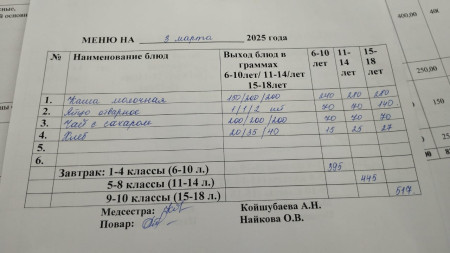 МЕНЮ НА 3 марта 2025 года
№ Наименование блюд Выход блюд в граммах 6-10лет/ 11-14/лет 15-18лет 6-10 лет 11-14 лет 15-18 лет
1. Каша молочная 150/200/200 240 280 280
2. Яйцо отварное 1/1/2 шт 70 70 140
3. Чай с сахаром 200/200/200 70 70 70
4. Хлеб 20/35/40 15 25 27
5.
6.
Завтрак: 1-4 классы (6-10 л.) 395
5-8 классы (11-14 л.) 445
9-10 классы (15-18 л.) 517
Медсестра: Койшубаева А.Н.
Повар: Найкова О.В.
400,00
250,00
150